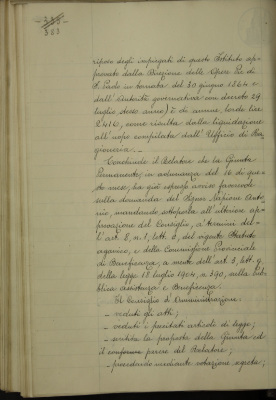 303
riposo degli impiegati di questo Istituto ap-
provato dalla Direzione delle Opere Pie di
S. Paolo in tornata del 30 giugno 1864 e
dall'Autorità governativa con decreto 29
luglio stesso anno) è di annue lorde lire
2416, come risulta dalla liquidazione
all'uopo compilata dall'Ufficio di Ra-
gioneria. -
Conchiude il Relatore che la Giunta
Permanente, in adunanza del 16 di que-
sto mese, ha già espresso avviso favorevole
sulla domanda del Signor Anto-
nio, mandando sottoporla all'ulteriore ap-
provazione del Consiglio, a termini del-
l'art. 8, n. 1, lett. c, del vigente Statuto
organico, e della Commissione Provinciale
di Beneficenza, a mente dell'art. 3, lett. g,
della legge 18 luglio 1904, n. 390, sulla Pub-
blica assistenza e Beneficenza.
Il Consiglio di Amministrazione:
- veduti gli atti;
- veduti i precitati articoli di legge;
- sentita la proposta della Giunta ed
il conforme parere del Relatore;
- procedendo mediante votazione segreta;